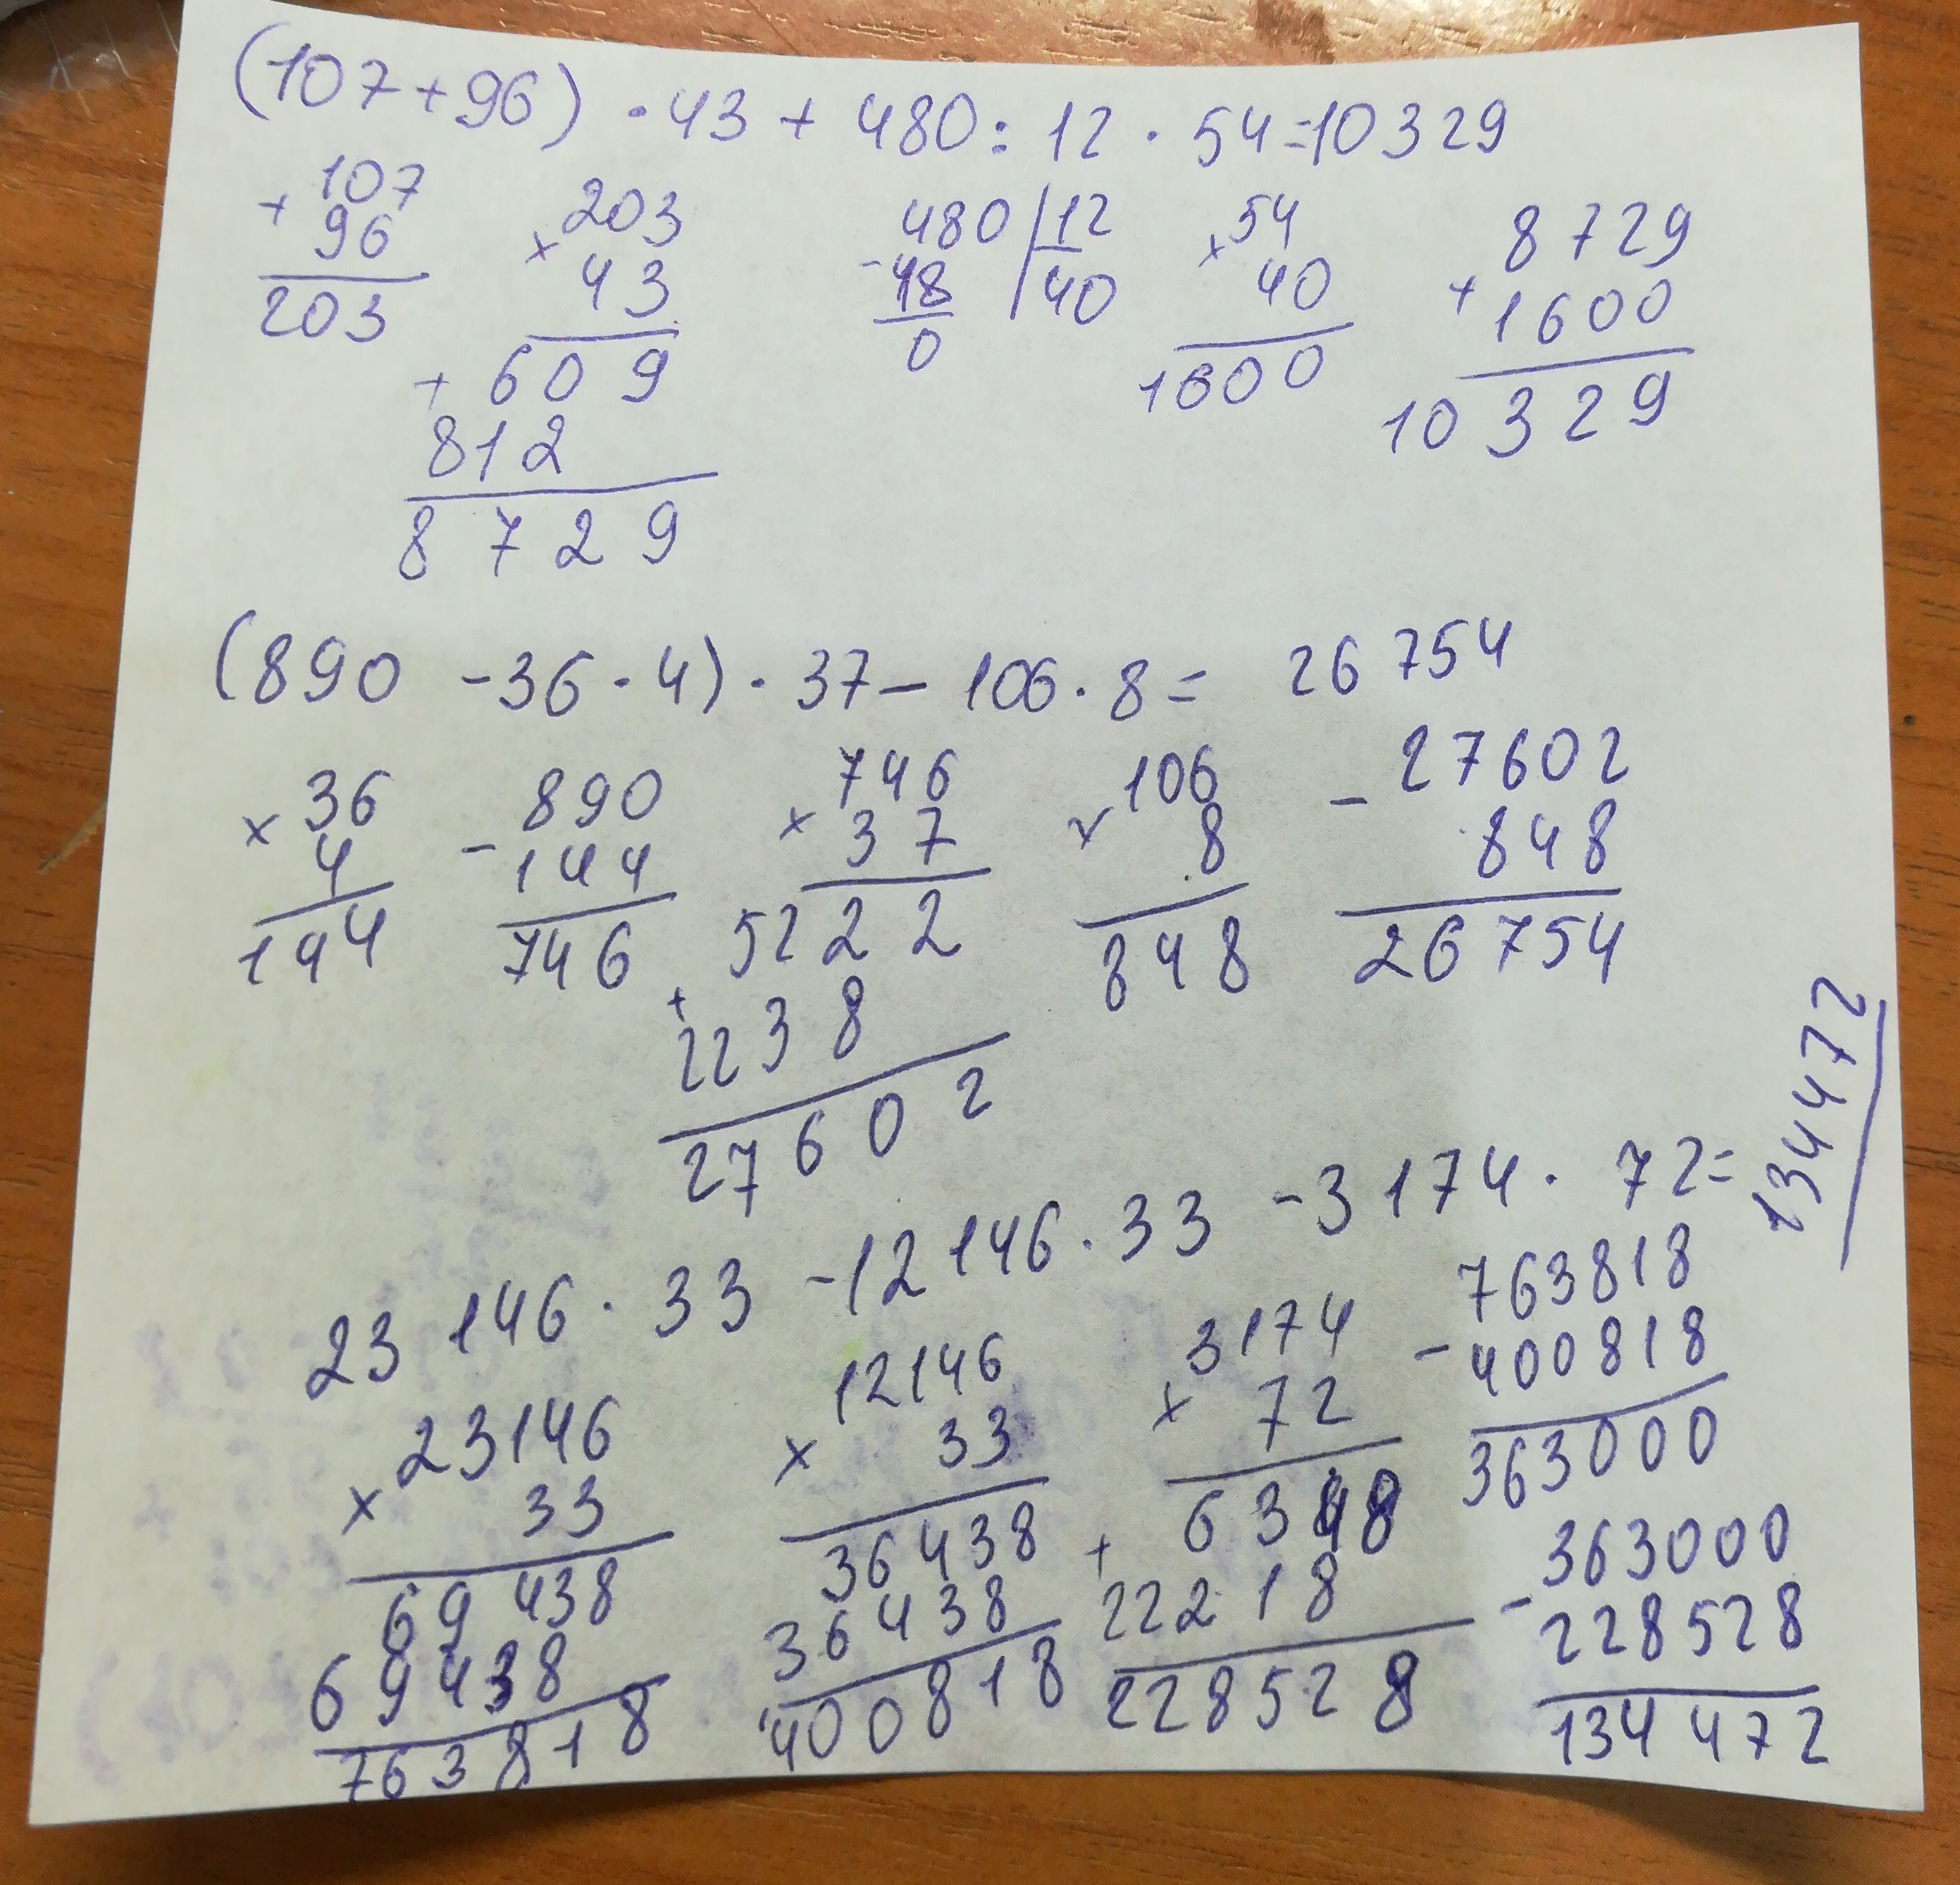 (107+96) · 43 + 480 : 12 · 54 = 10329
+ 107 × 203 - 480 | 12 × 54 + 8729
96 43 48 | 40 40 1600
203 + 609 0 1600 10329
812
8729
(890 - 36 · 4) · 37 - 106 · 8 = 26754
× 36 - 890 × 746 × 106 - 27602
4 144 37 8 848
144 746 + 5222 848 26754
2238
27602
23146 · 33 - 12146 · 33 - 3174 · 72 = 134472
× 23146 × 12146 × 3174 - 763818
33 33 72 400818
69438 36438 + 6348 363000
69438 36438 22218 - 363000
763818 400818 228528 228528
134472